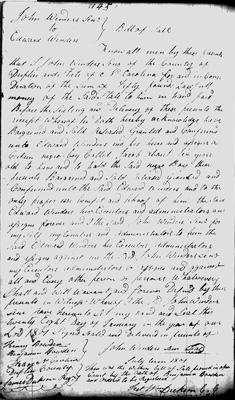 John Winders Senr
to } Bill of Sale
Edward Winders
Know all men by these presents
that I John Winders Senr of the County of
Duplin and State of N Carolina for and in Con
sideration of the sum of fifty pounds Lawful
money of the said State to him in hand paid
Before the sealing and Delivery of these presents the
receipt whereof he doth hereby acknowledge have
Bargained and Sold Released Granted and Confirmed
unto Edward Winders and his heirs and assigns a
certain negro boy Called about six years
old to have and to hold the said negro Boy
presents Bargained and Sold Granted and
Confirmed unto the said Edward Winders and to the
only proper use benefit and behoof of him the said
Edward Winders his Executors and administrators and
assigns forever and I the said John Winders Senr for
my self my Executors and Administrators to him the
said Edward Winders his Executors Administrators
and assigns against me the sd John Winders Senr
my Executors administrators or assigns and against
all and every other person or persons Whatsoever
Shall and will Warrant and forever Defend by these
presents in Witness Whereof I the sd John Winders
Senr have hereunto set my hand and Seal this
twenty Eight Day of January in the year of our
Lord 1801 Signed Sealed and Delivered in presence of
Benjamin Bowden
John Winders Senr Seal
Duplin County
July term 1801
Then was the Within Bill of Sale proved in open
Court by the oath of Benjamin Bowden
and ordered to be Registered